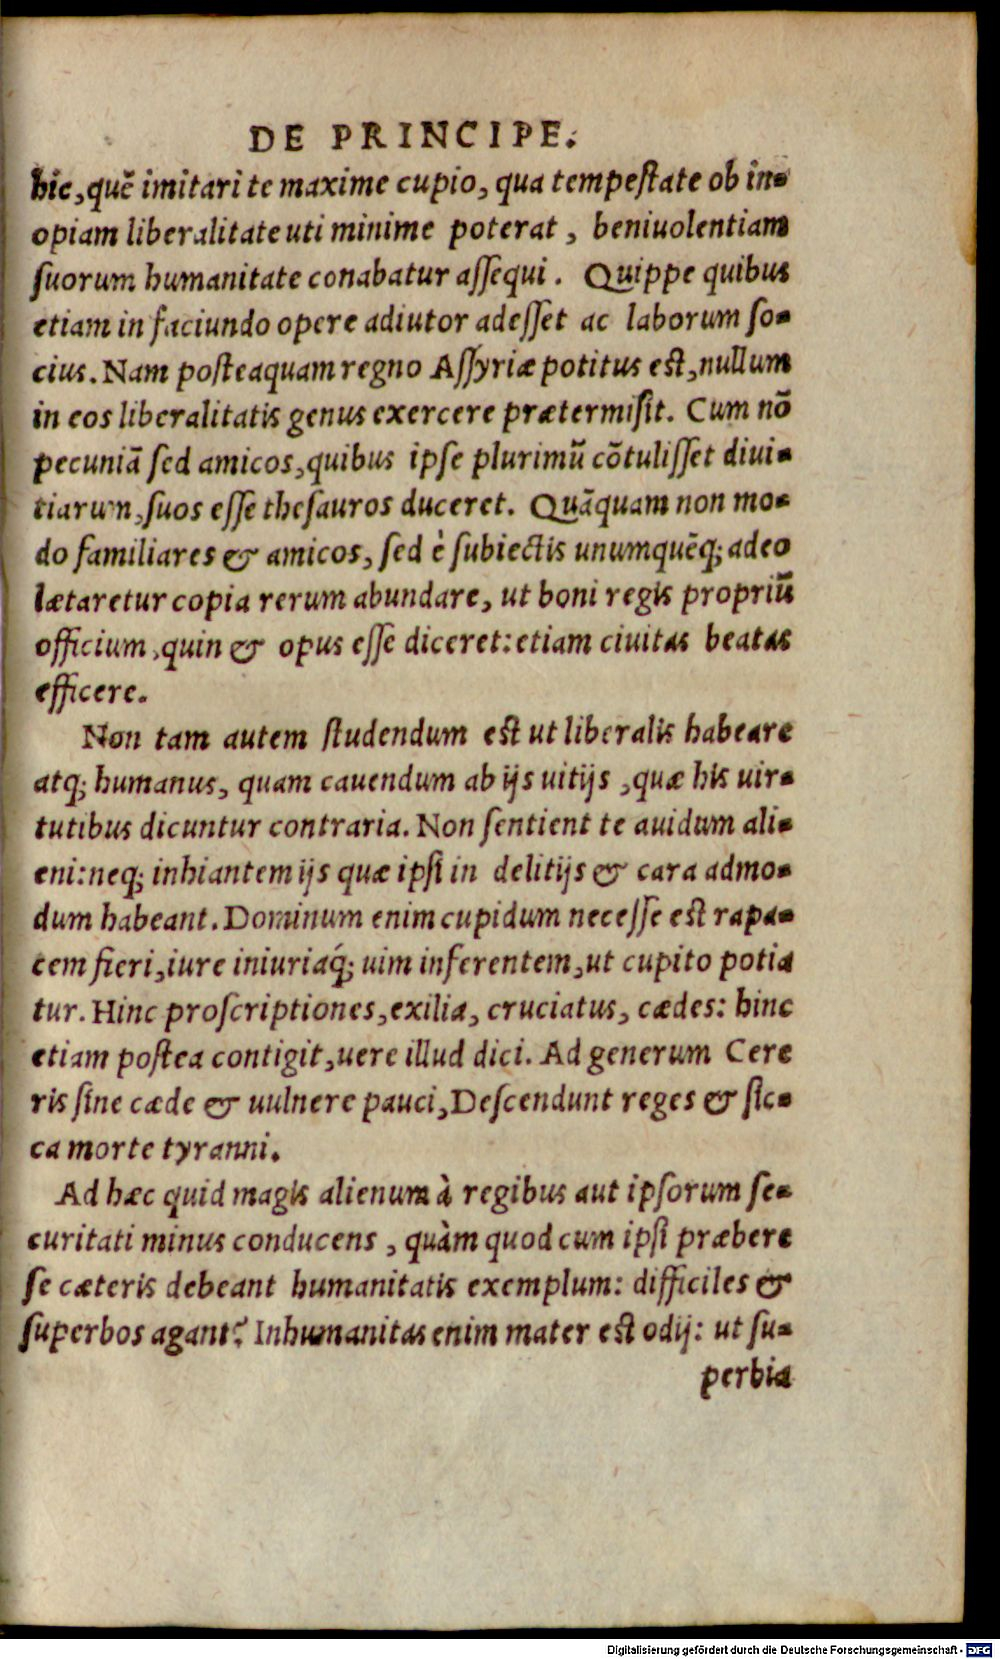 DE PRINCIPE.
hic, quē imitari te maxime cupio, qua tempeſtate ob in-
opiam liberalitate uti minime poterat, beniuolentiam
ſuorum humanitate conabatur aſſequi. Quippe quibus
etiam in faciundo opere adiutor adeſſet ac laborum ſo-
cius. Nam poſteaquam regno Aſſyriæ potitus eſt, nullum
in eos liberalitatis genus exercere prætermiſit. Cum nō
pecuniā ſed amicos, quibus ipſe plurimū cōtuliſſet diui-
tiarum, ſuos eſſe theſauros duceret. Quāquam non mo-
do familiares & amicos, ſed è ſubiectis unumquēq; adeo
lætaretur copia rerum abundare, ut boni regis propriū
officium, quin & opus eſſe diceret: etiam ciuitas beatas
efficere.
Non tam autem ſtudendum eſt ut liberalis habeare
atq; humanus, quam cauendum ab ijs uitijs, quæ his uir-
tutibus dicuntur contraria. Non ſentient te auidum ali-
eni: neq; inhiantem ijs quæ ipſi in delitijs & cara admo-
dum habeant. Dominum enim cupidum neceſſe eſt rapa-
cem fieri, iure iniuriáq; uim inferentem, ut cupito potia
tur. Hinc proſcriptiones, exilia, cruciatus, cædes: hinc
etiam poſtea contigit, uere illud dici. Ad generum Cere
ris ſine cæde & uulnere pauci, Deſcendunt reges & ſic-
ca morte tyranni.
Ad hæc quid magis alienum à regibus aut ipſorum ſe-
curitati minus conducens, quàm quod cum ipſi præbere
ſe cæteris debeant humanitatis exemplum: difficiles &
ſuperbos agant? Inhumanitas enim mater eſt odij: ut ſu-
perbia
Digitalisierung gefördert durch die Deutsche Forschungsgemeinschaft - DFG